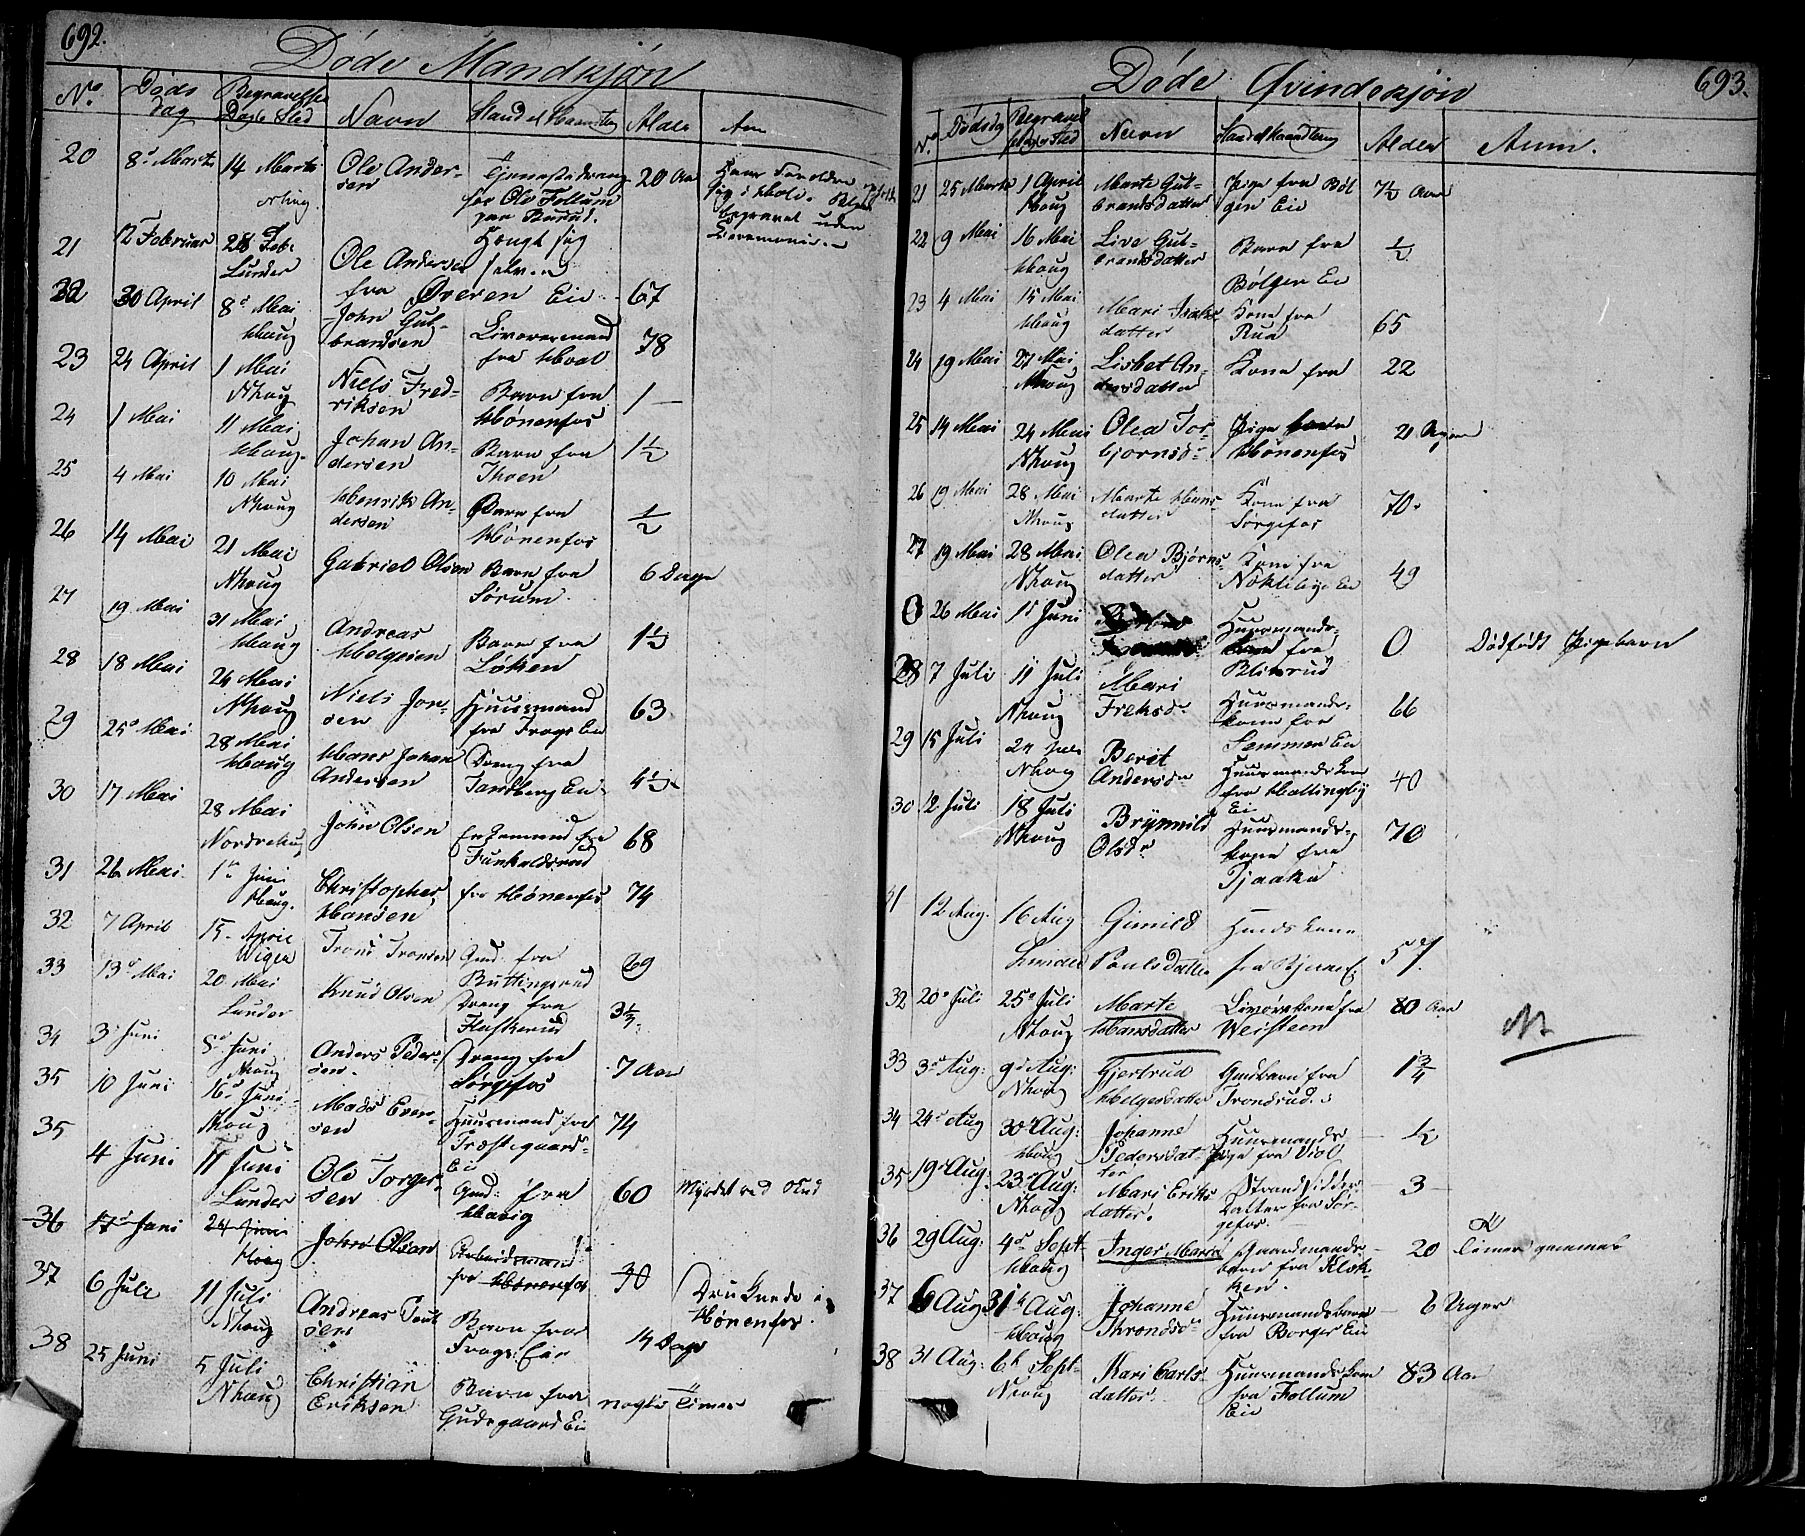 692.
Døde Mandkjøn
No. Døds dag Begravelses Dag & Sted Navn Stand & Haandtering Alder Anm
20 8de Marts 14 Marts Nhoug. Ole Andersen Tjenestedreng hos Ole Follum 20 Aar
Hængt sig selv
begravet uden Ceremonie
21 12 Februar 28 Feb: Lunder Ole Andersen fra Øveren Eie 67
22 30 April 8de Mai Houg John Gulbrandsen Livøresmand fra Hval 78
23 24 April 1 Mai Nhoug Niels Fredriksen Barn fra Hønenfos 1 —
24 1 Mai 11 Mai Houg Johan Andersen Barn fra Thoen 1½
25 4 Mai 10 Mai Nhoug Henrik Andersen Barn fra Hønenfos ½
26 14 Mai 21 Mai Nhoug Gabriel Olsen Barn fra Sørum 6 Dage
27 19 Mai 31 Mai Houg Andreas Holgeien Barn fra Løken 1½
28 18 Mai 24 Mai Nhoug Niels Jonsen Huusmand fra Frogs Eie 63
29 25de Mai 28 Mai Houg Hans Johan Andersen Dreng fra Tandberg Eie 4½
30 17 Mai 28 Mai Nordrehoug John Olsen Enkemand fra 68
31 26 Mai 1ste Juni Houg. Christopher Hansen fra Hønenfos 74
32 7 April 15 April Wiger Trond Tronsen Gmd. fra Buttingsrud 69
33 13de Mai 20 Mai Lunder Knud Olsen Dreng fra Flaskerud
34 3 Juni 8de Juni Nhoug Anders Pedersen. Dreng fra Sørgefos 7 Aar
35 10 Juni 16de Juni Nhoug Mads Evensen Huusmand fra Træstegaards Eie 74
35 4 Juni 11 Juni Lunder Ole Torgersen Gmd: fra Havig 60 Myrdet ved Skud
36 17de Juni 24 Juni Houg John Olsen Arbeidsmand fra Hønenfos 30 Druknede i Hønenfos.
37 6 Juli 11 Juli Nhoug Andreas Poulsen Barn fra Frogs: Eie 14 Dage
38 25 Juni 5 Juli Nhoug Christian Eriksen Barn fra Gudsgaards Eie nogle Timer
693.
Døde Qvindekjøn
No. Dødsdag Begravelses dag & Sted Navn Stand & Haandtering Alder Anm.
21 25 Marts 1 April Houg Marte Gulbrandsdatter Pige fra Bølgen Eie 7½ Aar
22 9 Mai 16 Mai Houg Live Gulbrandsdatter Barn fra Bølgen Eie ½
23 4 Mai 15 Mai Houg Mari datter Kone fra Rua 65
24 19 Mai 27 Mai Nhoug Lisbet Andersdatter Kone fra 22
25 14 Mai 24 Mai Nhoug Olea Torbjornsd. Pige fra Hønenfos 21 Uger
26 19 Mai 28 Mai Nhoug Marte Hansdatter Kone fra Sørgefos 70.
27 19 Mai 28 Mai Nhoug Olea Bjørnsdatter Kone fra Nokleby Eie 49
0 26 Mai 11 Juni Huusmands fra Blixrud 0 Dødfødt Pigebarn
28 7 Juli 11 Juli Nhoug Mari Freksdr Huusmandskone fra Semmen Eie 66
29 15 Juli 24 Juli Nhoug Berit Andersdr Huusmandskone fra Hallingby Eie 40
30 12 Juli 18 Juli Nhoug Brynnild Olsdr Huusmandskone fra Tjaaka 70
31 12 Aug. 16 Aug Lunder Gunild Poulsdatter Huuskone fra 57
32 20de Juli 25de Juli Nhoug Marte Hansdatter Livørekone fra Weisteen 80 Aar NB
33 3de Aug: 9de Aug: Nhoug Gjertrud Helgesdatter Gmdbarn fra Trondrud. 1¾
34 24de Aug 30 Aug: Houg Johanne Pedersdatter Huusmandspige fra Viol — ½
35 19de Aug. 23de Aug: Nhoug Mari Eriksdatter. Strandsidderdatter fra Sørgefos. — 3 —
36 29 Aug: 4de Septt Houg Inger Marie Gaardmandsbarn fra Klokken. — 20 Timer gammel
37 6 Aug: 31te Aug: Houg Johanne Throndsdr Huusmandsbarn fra Borger Eie — 6 Uger
38 31 Aug: 6te Sept. Nhoug Kari Carlsdatter. Huusmandskone fra Follum Eie 83 Aar